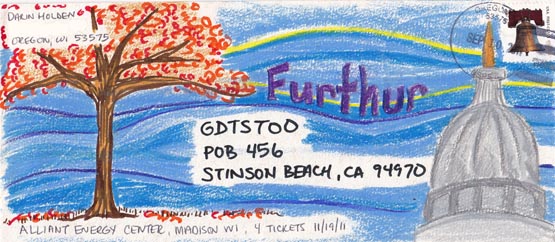 DARIN HOLDEN
OREGON, WI 53575
OREGON
53575
SEP
Furthur
GDTSTOO
POB 456
STINSON BEACH, CA 94970
ALLIANT ENERGY CENTER, MADISON WI, 4 TICKETS 11/19/11